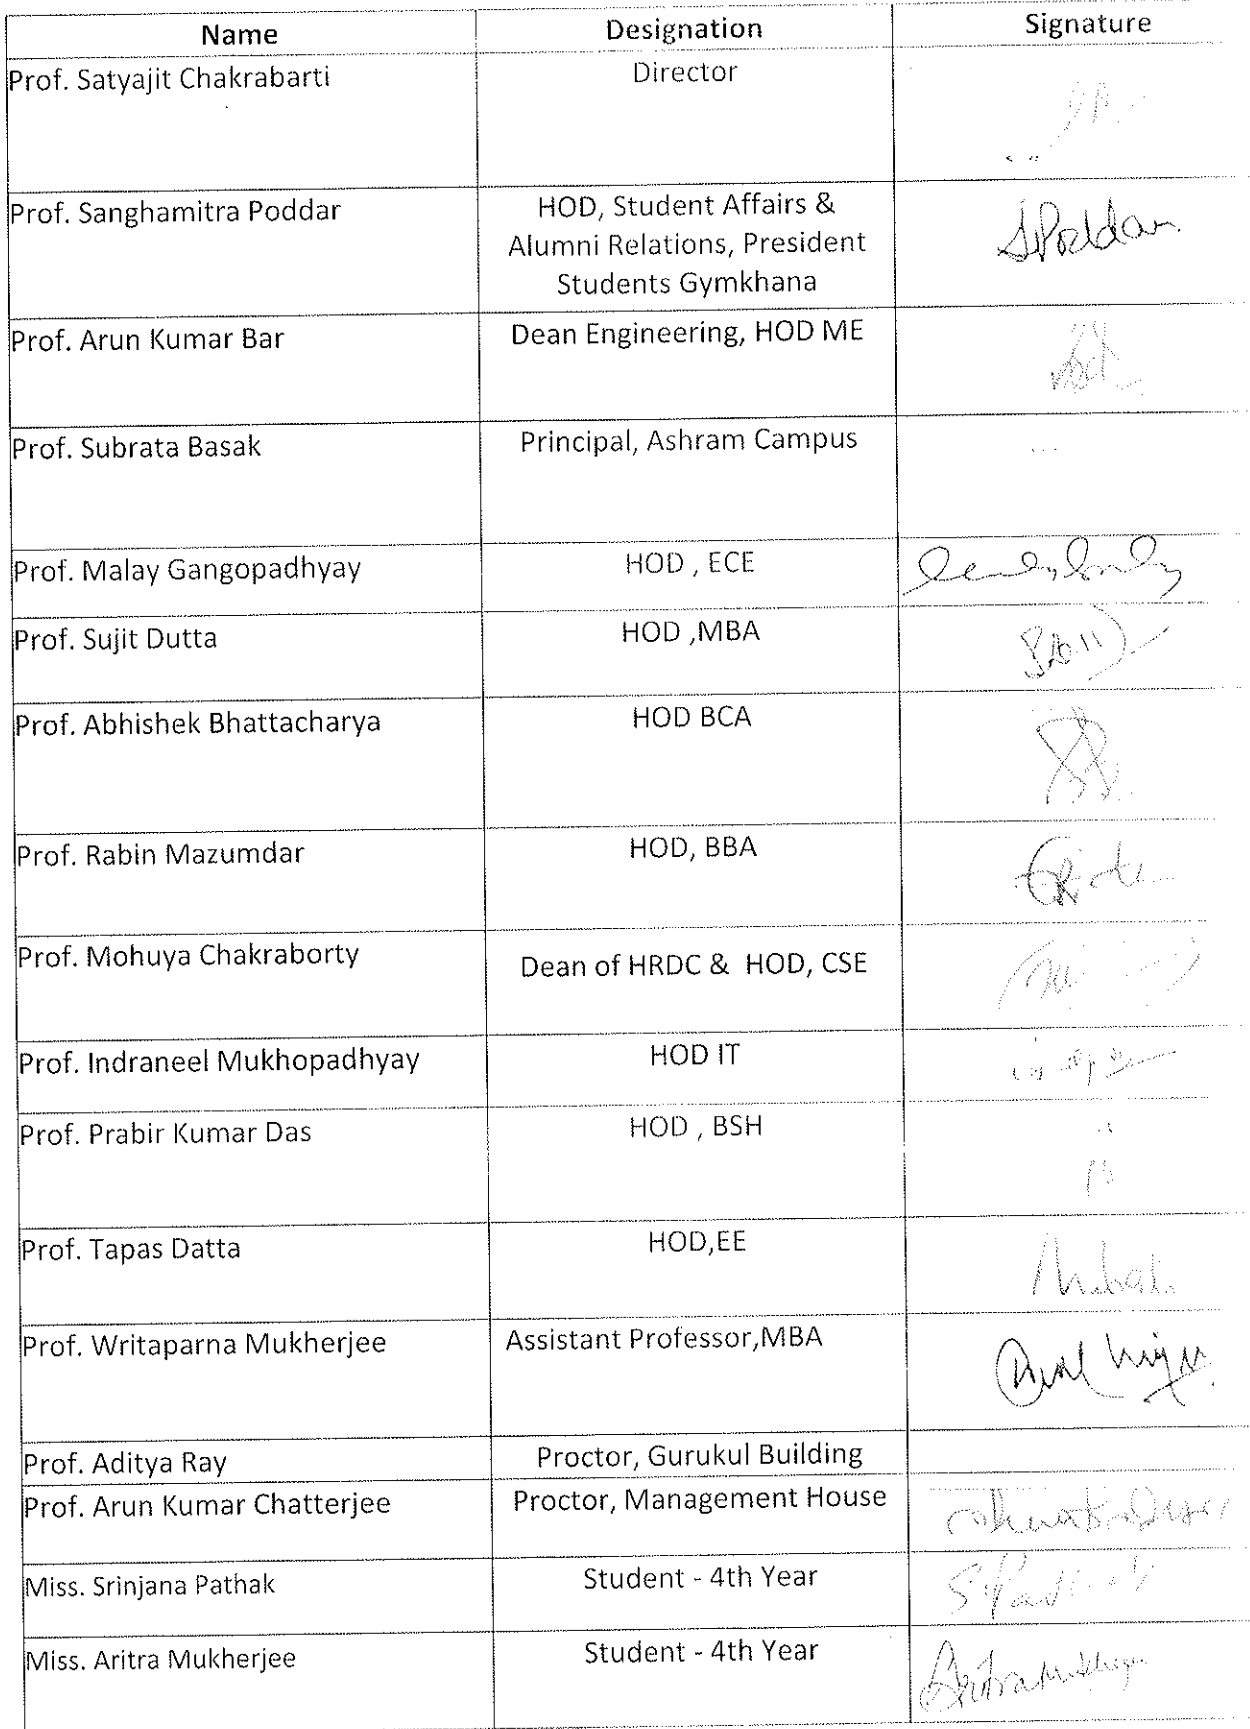 Name Designation Signature
Prof. Satyajit Chakrabarti Director
Prof. Sanghamitra Poddar HOD, Student Affairs & SPoddar
Alumni Relations, President
Students Gymkhana
Prof. Arun Kumar Bar Dean Engineering, HOD ME
Prof. Subrata Basak Principal, Ashram Campus
Prof. Malay Gangopadhyay HOD , ECE
Prof. Sujit Dutta HOD ,MBA
Prof. Abhishek Bhattacharya HOD BCA
Prof. Rabin Mazumdar HOD, BBA
Prof. Mohuya Chakraborty Dean of HRDC & HOD, CSE
Prof. Indraneel Mukhopadhyay HOD IT
Prof. Prabir Kumar Das HOD , BSH
Prof. Tapas Datta HOD,EE
Prof. Writaparna Mukherjee Assistant Professor,MBA
Prof. Aditya Ray Proctor, Gurukul Building
Prof. Arun Kumar Chatterjee Proctor, Management House
Miss. Srinjana Pathak Student - 4th Year
Miss. Aritra Mukherjee Student - 4th Year Aritra Mukherjee